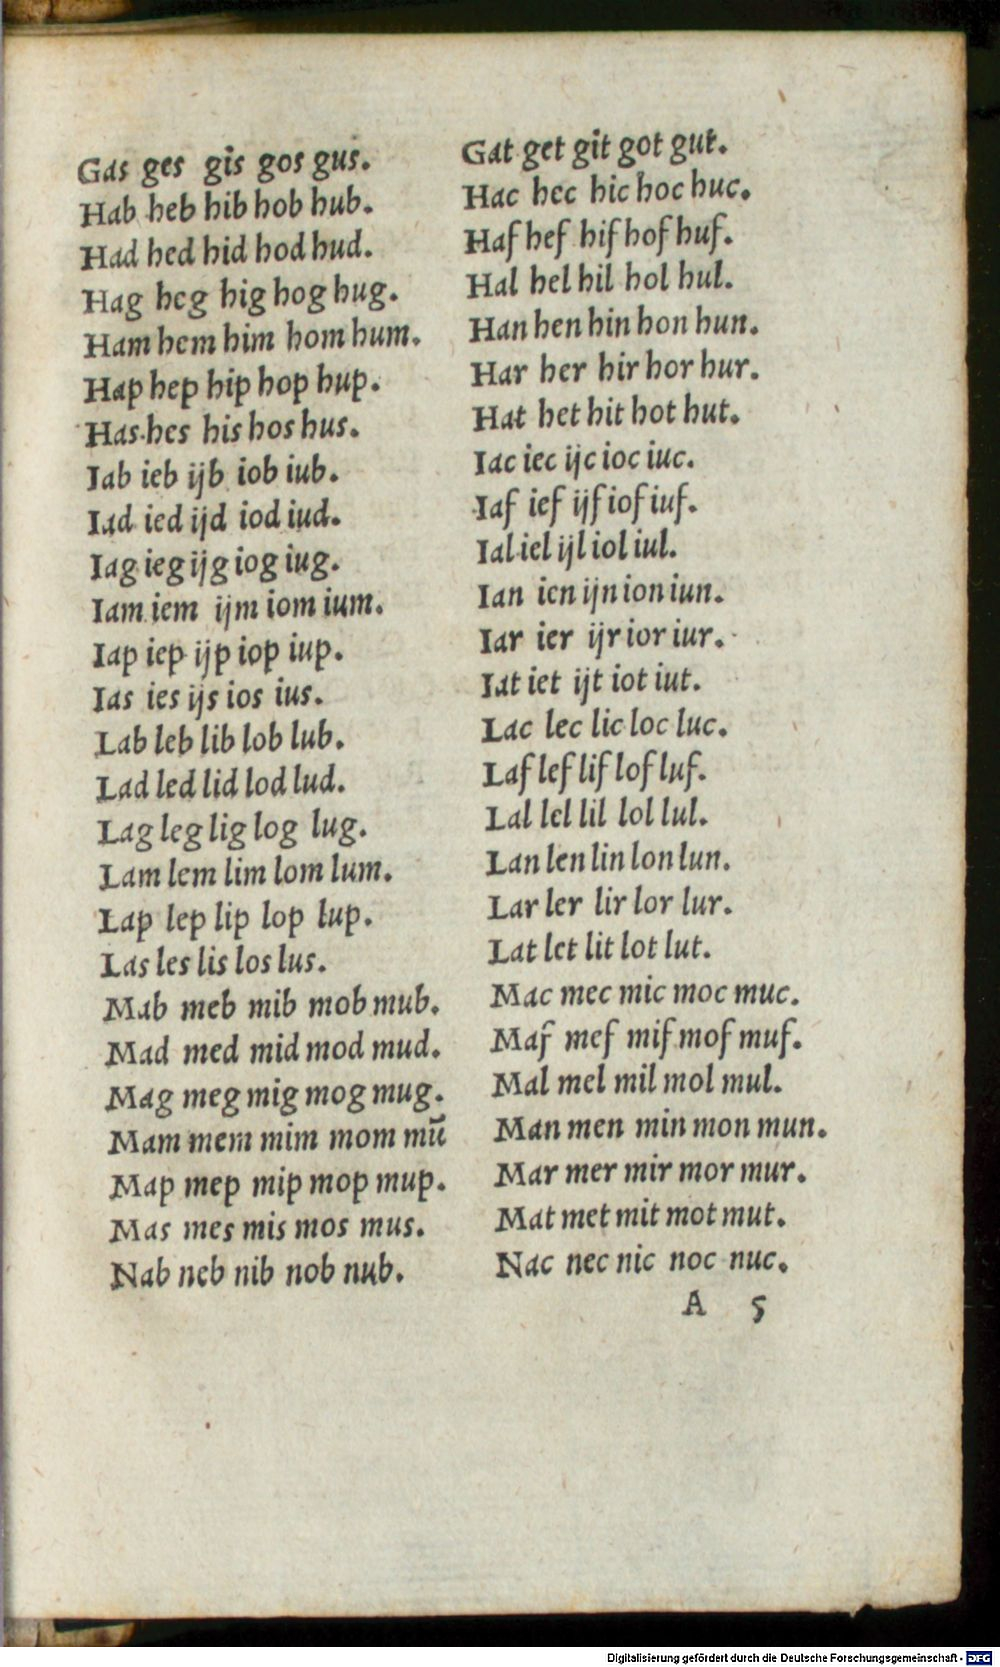 Gas ges gis gos gus.
Hab heb hib hob hub.
Had hed hid hod hud.
Hag heg hig hog hug.
Ham hem him hom hum.
Hap hep hip hop hup.
Has hes his hos hus.
Iab ieb ijb iob iub.
Iad ied ijd iod iud.
Iag ieg ijg iog iug.
Iam iem ijm iom ium.
Iap iep ijp iop iup.
Ias ies ijs ios ius.
Lab leb lib lob lub.
Lad led lid lod lud.
Lag leg lig log lug.
Lam lem lim lom lum.
Lap lep lip lop lup.
Las les lis los lus.
Mab meb mib mob mub.
Mad med mid mod mud.
Mag meg mig mog mug.
Mam mem mim mom mū
Map mep mip mop mup.
Mas mes mis mos mus.
Nab neb nib nob nub.
Gat get git got gut.
Hac hec hic hoc huc.
Haf hef hif hof huf.
Hal hel hil hol hul.
Han hen hin hon hun.
Har her hir hor hur.
Hat het hit hot hut.
Iac iec ijc ioc iuc.
Iaf ief ijf iof iuf.
Ial iel ijl iol iul.
Ian ien ijn ion iun.
Iar ier ijr ior iur.
Iat iet ijt iot iut.
Lac lec lic loc luc.
Laf lef lif lof luf.
Lal lel lil lol lul.
Lan len lin lon lun.
Lar ler lir lor lur.
Lat let lit lot lut.
Mac mec mic moc muc.
Maf mef mif mof muf.
Mal mel mil mol mul.
Man men min mon mun.
Mar mer mir mor mur.
Mat met mit mot mut.
Nac nec nic noc nuc.
A 5
Digitalisierung gefördert durch die Deutsche Forschungsgemeinschaft - DFG